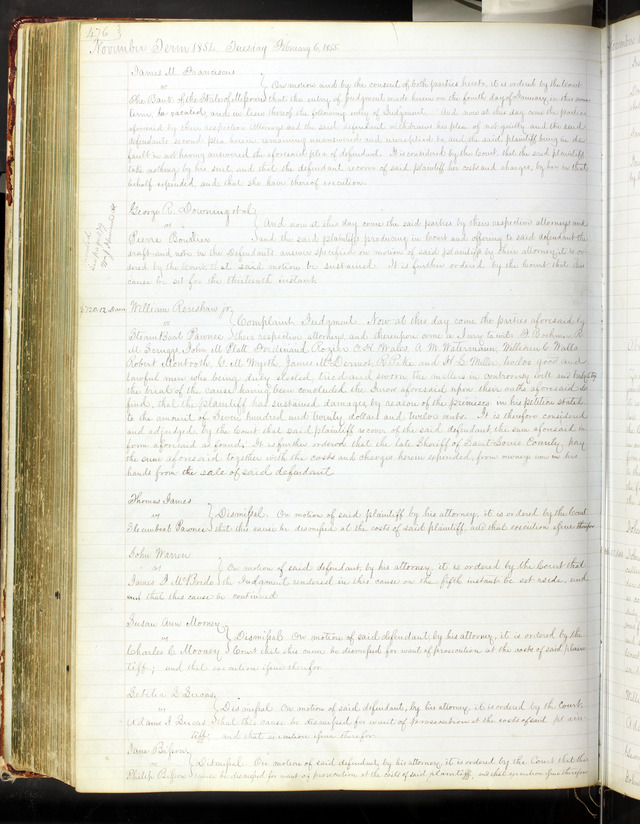 476
November Term 1854 Tuesday February 6, 1855
James M. Franciscus
vs } On motion and by the consent of both parties hereto, it is ordered by the Court
The Bank of the State of Missouri that the entry of Judgment made herein on the fourth day of January, in this same
term, be vacated, and in lieu thereof the following entry of Judgment. And now at this day come the parties
aforesaid by their respective attorneys and the said defendant withdraws his plea of not guilty and the said
defendants second plea herein remaining unanswered and unreplied to, and the said plaintiff being in de
fault in not having answered the aforesaid plea of defendant. It is considered by the Court, that the said plaintiff
take nothing by his suit, and that the defendant recover of said plaintiff her costs and charges, by her in that
behalf expended, and that she have thereof execution.
George R. Downing et al
vs } And now at this day come the said parties by their respective attorneys and
Pierre and the said plaintiffs producing in Court and offering to said defendant the
draft and note in the Defendants answer specified on motion of said plaintiffs by their attorney it is or
dered by the Court that said motion be sustained. It is further ordered by the Court that this
cause be set for the thirteenth instant.
$720.12 William Renshaw jr.
vs } Complaint Judgment. Now at this day come the parties aforesaid by
Steam Boat Pawnee their respective attorneys, and thereupon come a Jury to wit:
M. Scruggs, John M. Platt, Ferdinand Rozier, A. W. Waterman, William C. Watts
Robert Montrooth, C. M. Wyeth, James McDermot, R. Pike and H. L. Miller, twelve good and
lawful men who being duly elected, tried and sworn the matters in controversy well and truly to try
the trial of the cause having been concluded the Jurors aforesaid upon their oaths aforesaid do
find, that the plaintiff has sustained damages, by reason of the premises in his petition stated
to the amount of Seven hundred and twenty dollars and twelve cents. It is therefore considered
and adjudged by the Court that said plaintiff recover of the said defendant the sum aforesaid in
form aforesaid as found. It is further ordered that the late Sheriff of Saint Louis County, pay
the sum aforesaid together with the costs and charges herein expended, from moneys now in his
hands from the sale of said defendant
Thomas James
vs } Dismissal. On motion of said plaintiff by his attorney, it is ordered by the Court
Steamboat Pawnee that this cause be dismissed at the costs of said plaintiff, and that execution issue therefor
John Warren
vs } On motion of said defendant, by his attorney, it is ordered by the Court that
James F. McBride the Judgment rendered in this cause on the fifth instant be set aside, and
and that this cause be continued
Susan Ann Mooney
vs } Dismissal On motion of said defendant, by his attorney, it is ordered by the
Charles C. Mooney Court that this cause be dismissed for want of prosecution at the costs of said plain
tiff; and that execution issue therefor
Lucas
vs } Dismissal On motion of said defendant, by his attorney, it is ordered by the Court
Adams J. Lucas that this cause be dismissed for want of prosecution at the costs of said plain
tiff; and that execution issue therefor
Jane
vs } Dismissal On motion of said defendant, by his attorney, it is ordered by the Court that this
Philip cause be dismissed for want of prosecution at the costs of said plaintiff, and that execution issue therefor